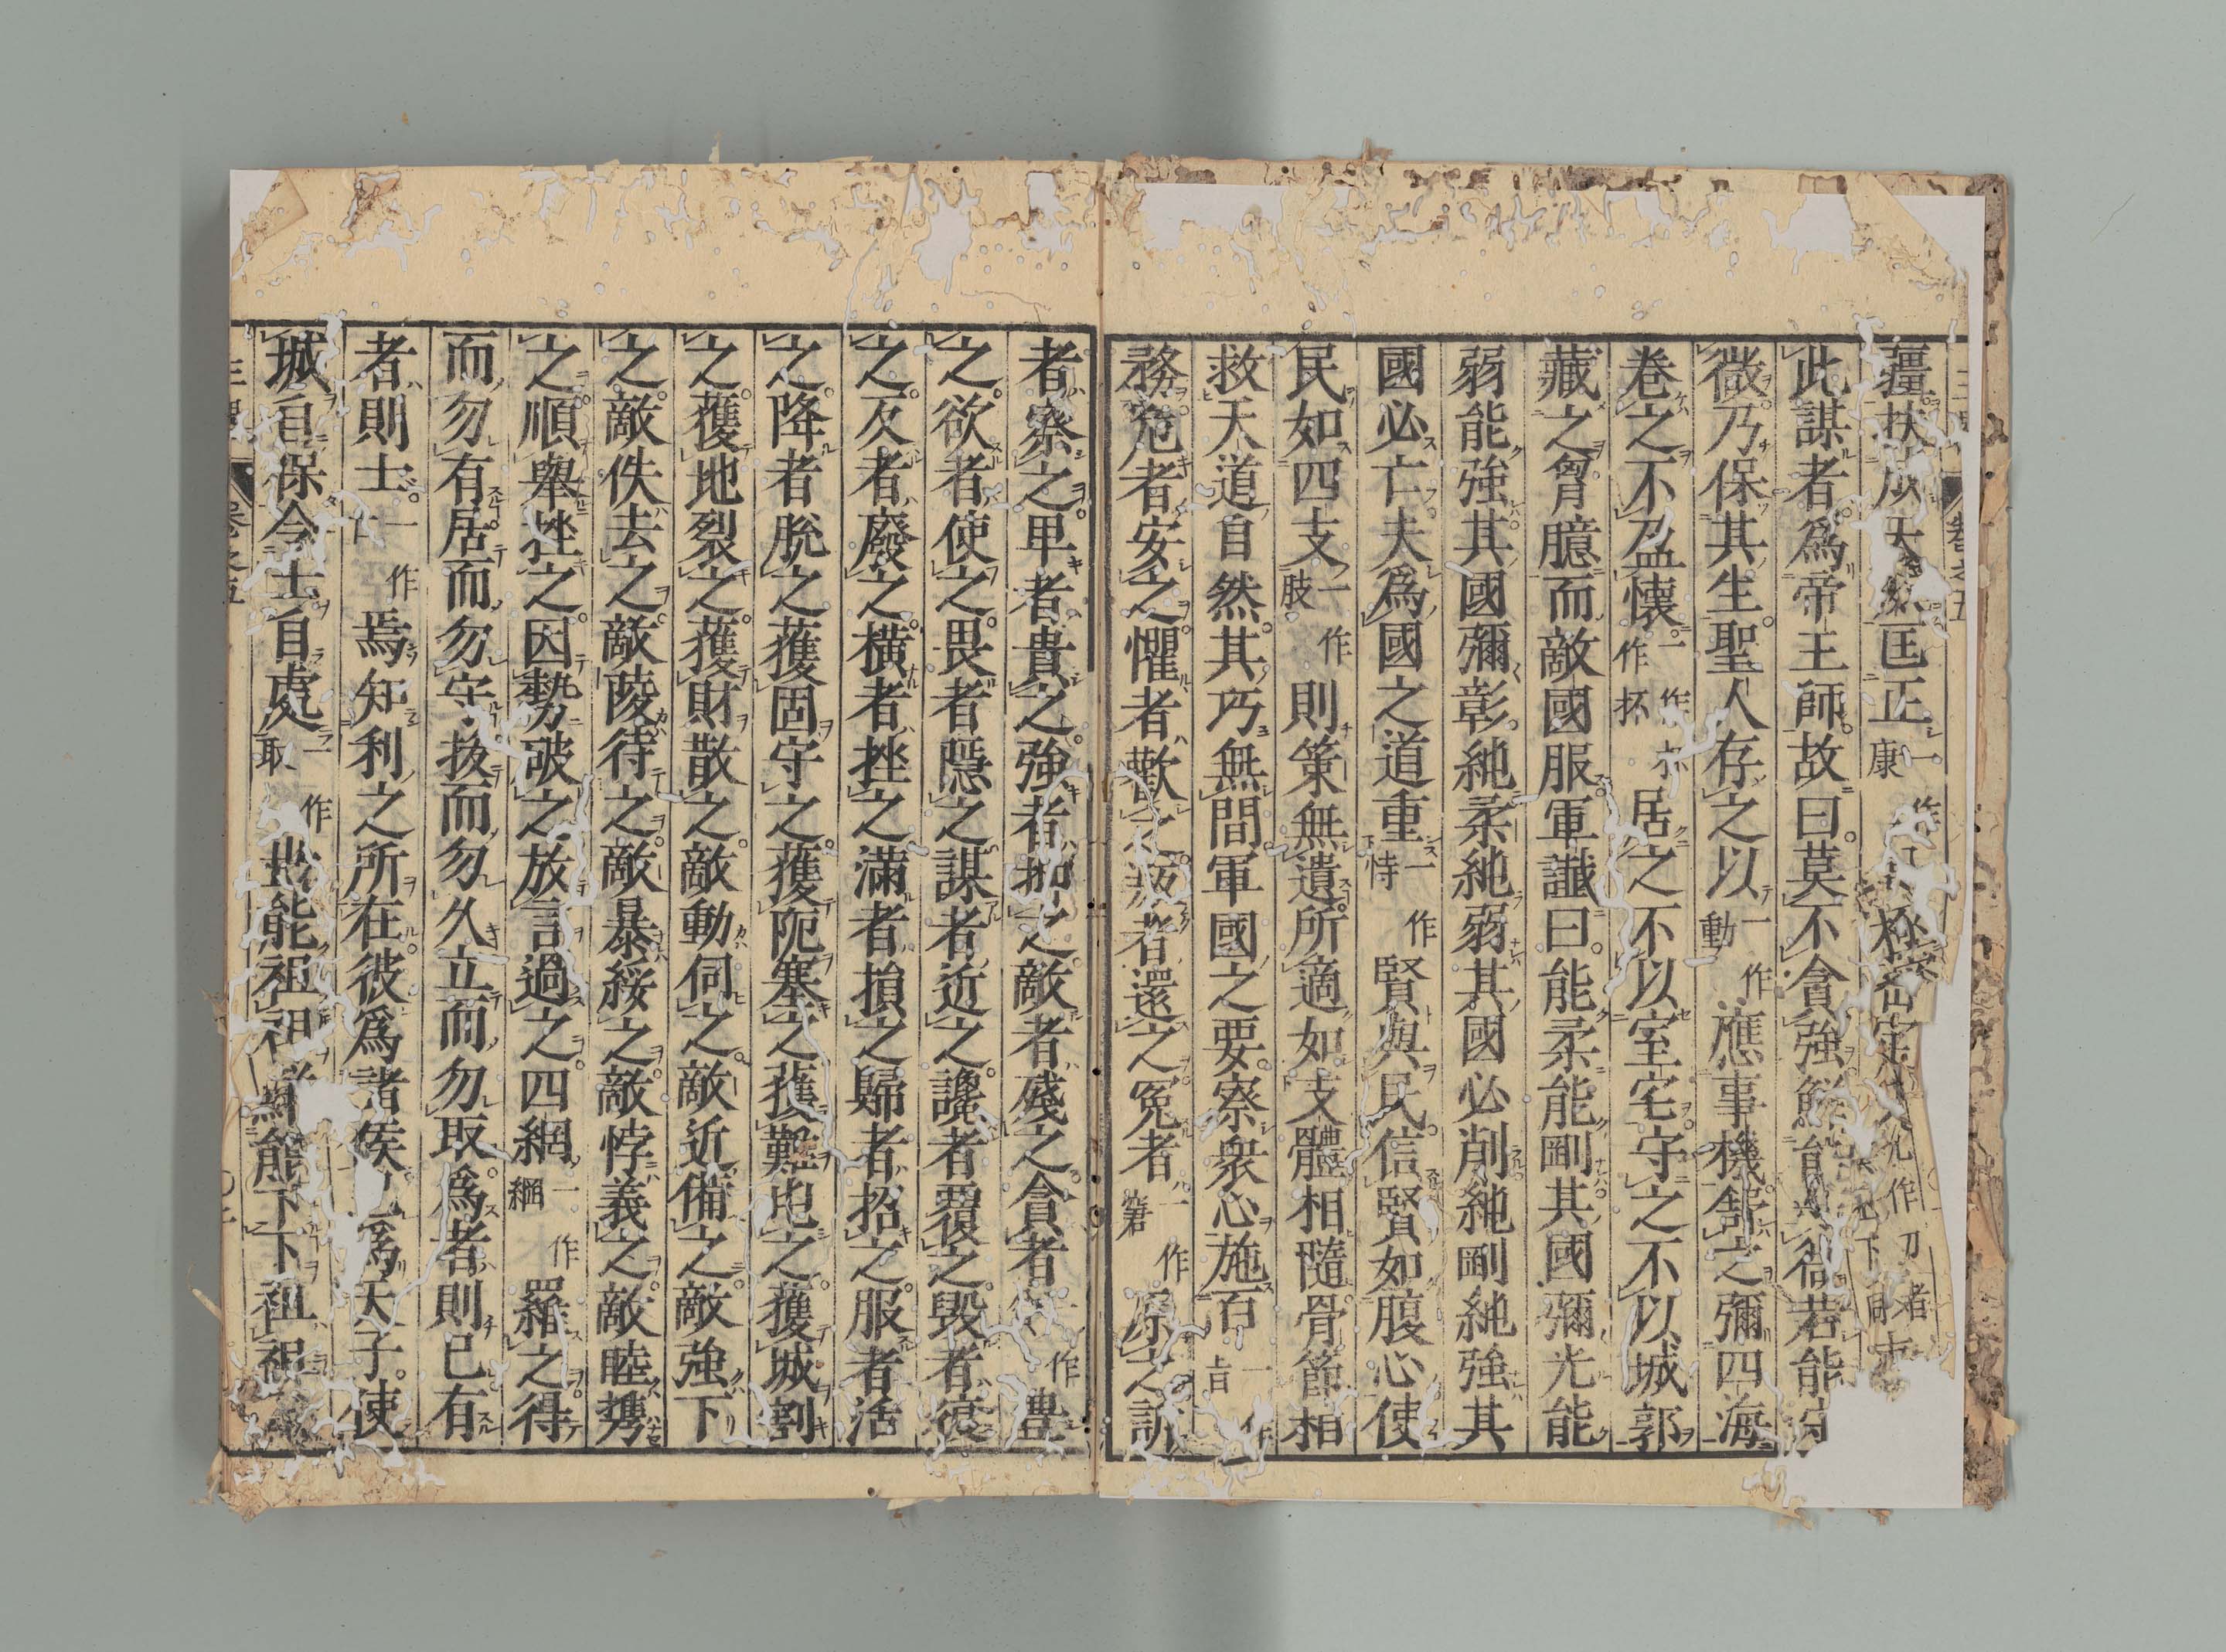 疆扶成天匡正一作康極密定九一作刀者下同
此謀者爲帝王師故曰莫不貪強鮮能若能
微乃保其生聖人存之以一作動應事機舒之彌四海
卷之不盈懷一作作抔居之不以室宅守之不以城郭
藏之胷臆而敵國服軍讖曰能柔能剛其國彌光能
弱能強其國彌彰純柔純弱其國必削純剛純強其
國必亡夫爲國之道重一作恃賢與民信賢如腹心使
民如四支一作肢則策無遺所適如支體相隨骨節相
救天道自然其巧無間軍國之要察衆心施百一作
務危者安之懼者歡之叛者還之冤者一作窘原之訴
者察之卑者貴之強者抑之敵者殘之貪者一作豊
之欲者使之畏者隱之謀者近之讒者覆之毀者復
之反者廢之橫者挫之滿者損之歸者招之服者活
之降者脫之獲固守之獲阨塞之獲難屯之獲城割
之獲地裂之獲財散之敵動伺之敵近備之敵強下
之敵佚去之敵陵待之敵暴綏之敵悖義之敵睦攜
之順舉挫之因勢破之放言過之四網一作綱羅之得
而勿有居而勿守拔而勿久立而勿取爲者則己有
者則士一作焉知利之所在彼爲諸侯爲天子使
城自保令士自處一作取世能祖祖能下下祖祖